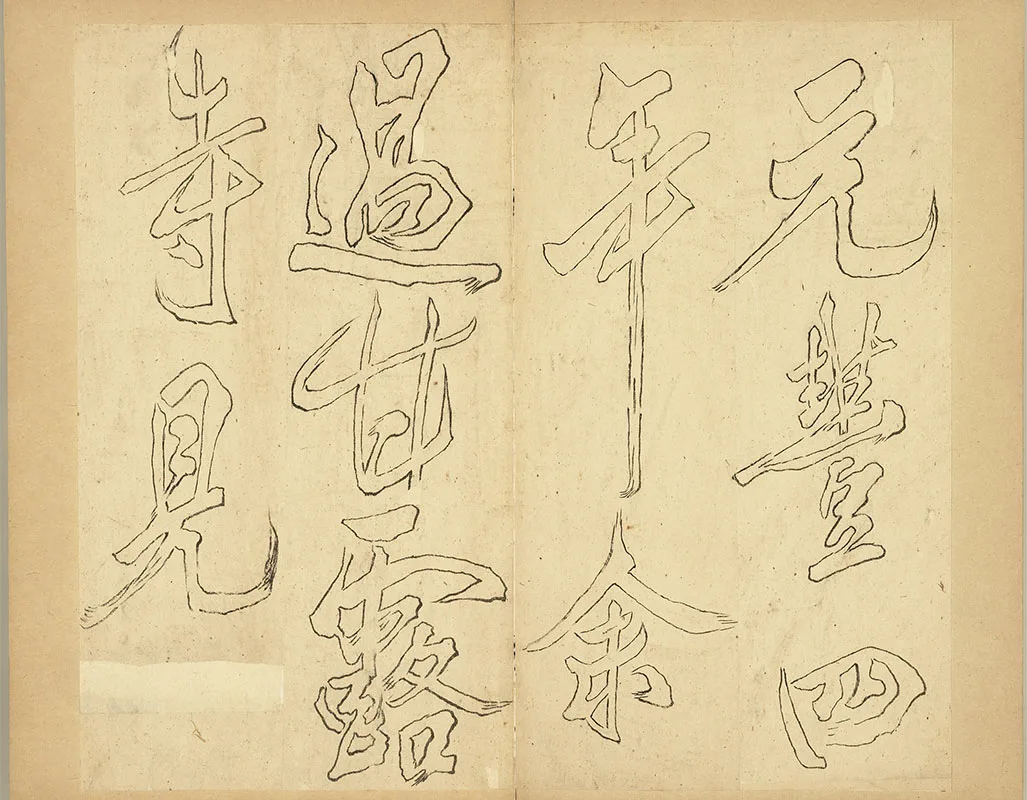 元豐四
年余
過甘露
寺見